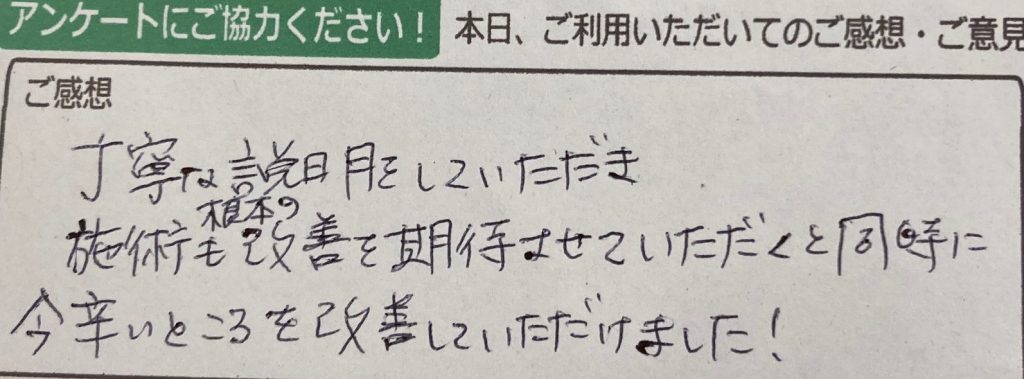 アンケートにご協力ください！ 本日、ご利用いただいてのご感想・ご意見
ご感想
丁寧な説明をしていただき
施術も根本の改善を期待させていただくと同時に
今辛いところを改善していただけました！